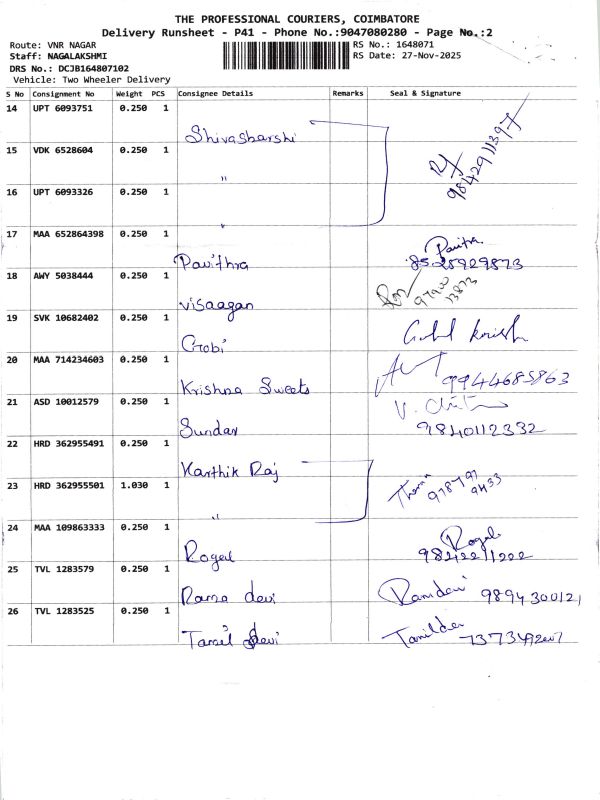 THE PROFESSIONAL COURIERS, COIMBATORE
Delivery Runsheet - P41 - Phone No.:9047080280 - Page No.:2
Route: VNR NAGAR
RS No.: 1648071
Staff: NAGALAKSHMI
RS Date: 27-Nov-2025
DRS No.: DCJB164807102
Vehicle: Two Wheeler Delivery
S No Consignment No Weight PCS Consignee Details Remarks Seal & Signature
14 UPT 6093751 0.250 1 Shivasharshi
15 VDK 6528604 0.250 1 " 9842911397
16 UPT 6093326 0.250 1 "
17 MAA 652864398 0.250 1 Pavithra Pavitra 8525929873
18 AWY 5038444 0.250 1 Visaagan 97900 13873
19 SVK 10682402 0.250 1 Gobi
20 MAA 714234603 0.250 1 Krishna Sweets 9944685863
21 ASD 10012579 0.250 1 Sundar 9840112332
22 HRD 362955491 0.250 1 Karthik Raj
23 HRD 362955501 1.030 1 "
24 MAA 109863333 0.250 1 Rogal Rogal 9842211222
25 TVL 1283579 0.250 1 Rama devi Ramdevi 9894300121
26 TVL 1283525 0.250 1 Tamil devi